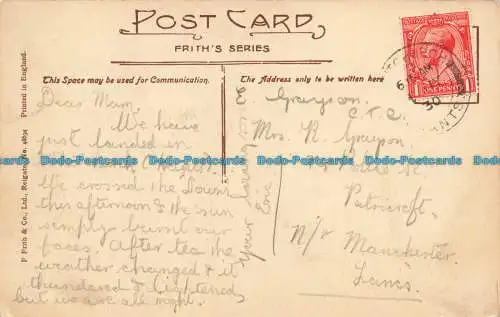 POST CARD
FRITH'S SERIES
This Space may be used for Communication.
The Address only to be written here
F. Frith & Co., Ltd., Reigate. No. Printed in England.
Dear Mam,
We have
just landed in
We crossed the Downs
this afternoon & the sun
simply burnt our
faces. After tea the
weather changed & it
thundered & lightened
but we are all right.
Your loving son
Eric
E. Grayson
C.T.C.
Mrs. R. Grayson
Patricroft,
N/r Manchester
Lancs.
ONE PENNY
30
ANTS
Dodo-Postcards Dodo-Postcards Dodo-Postcards Dodo-Postcards Dodo-Postcards